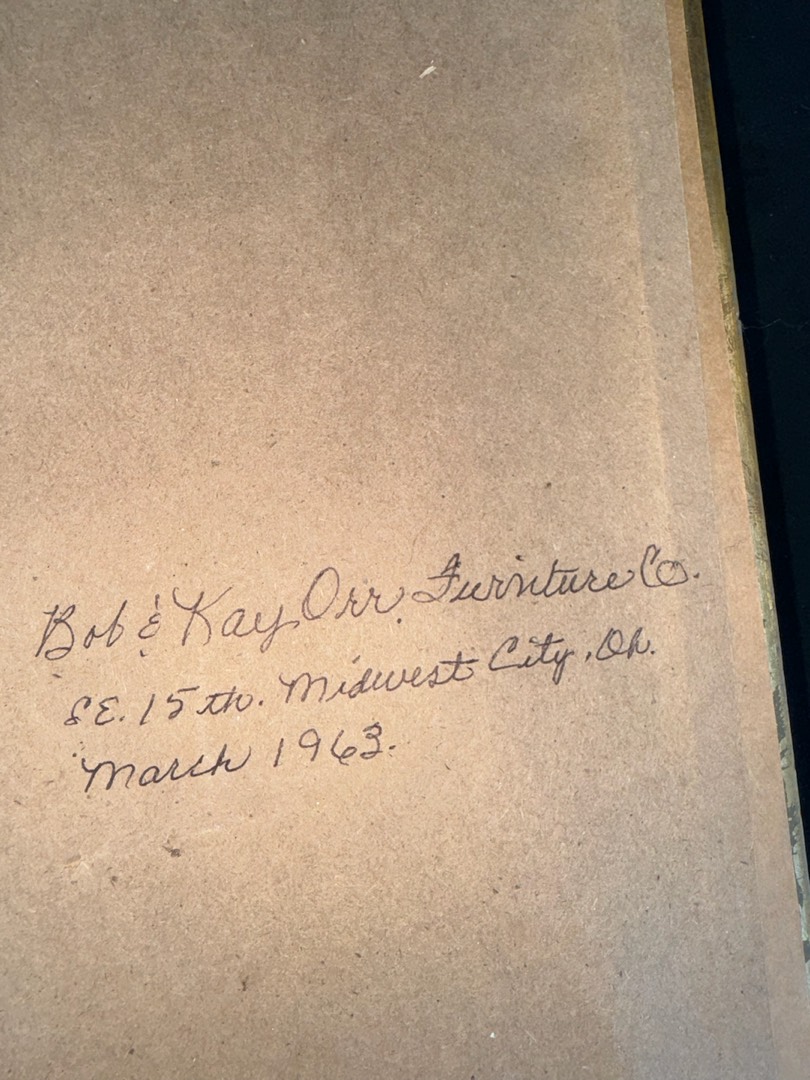 Bob & Kay Orr, Furniture Co.
SE. 15th. Midwest City, Ok.
March 1963.